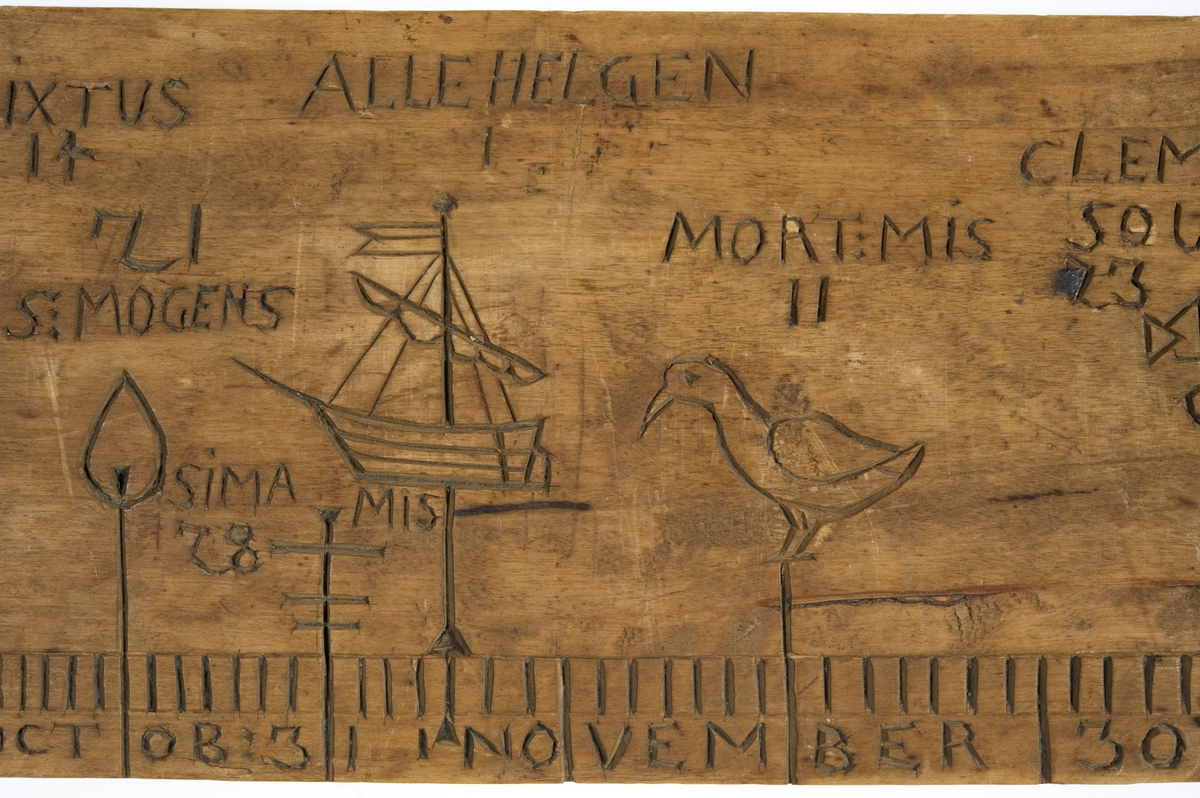 IXTUS
14
ALLEHELGEN
1
CLEM
SOU
23
21
S: MOGENS
MORT: MIS
11
SIMA MIS
28
OCTOB: 31 1 NOVEMBER 30